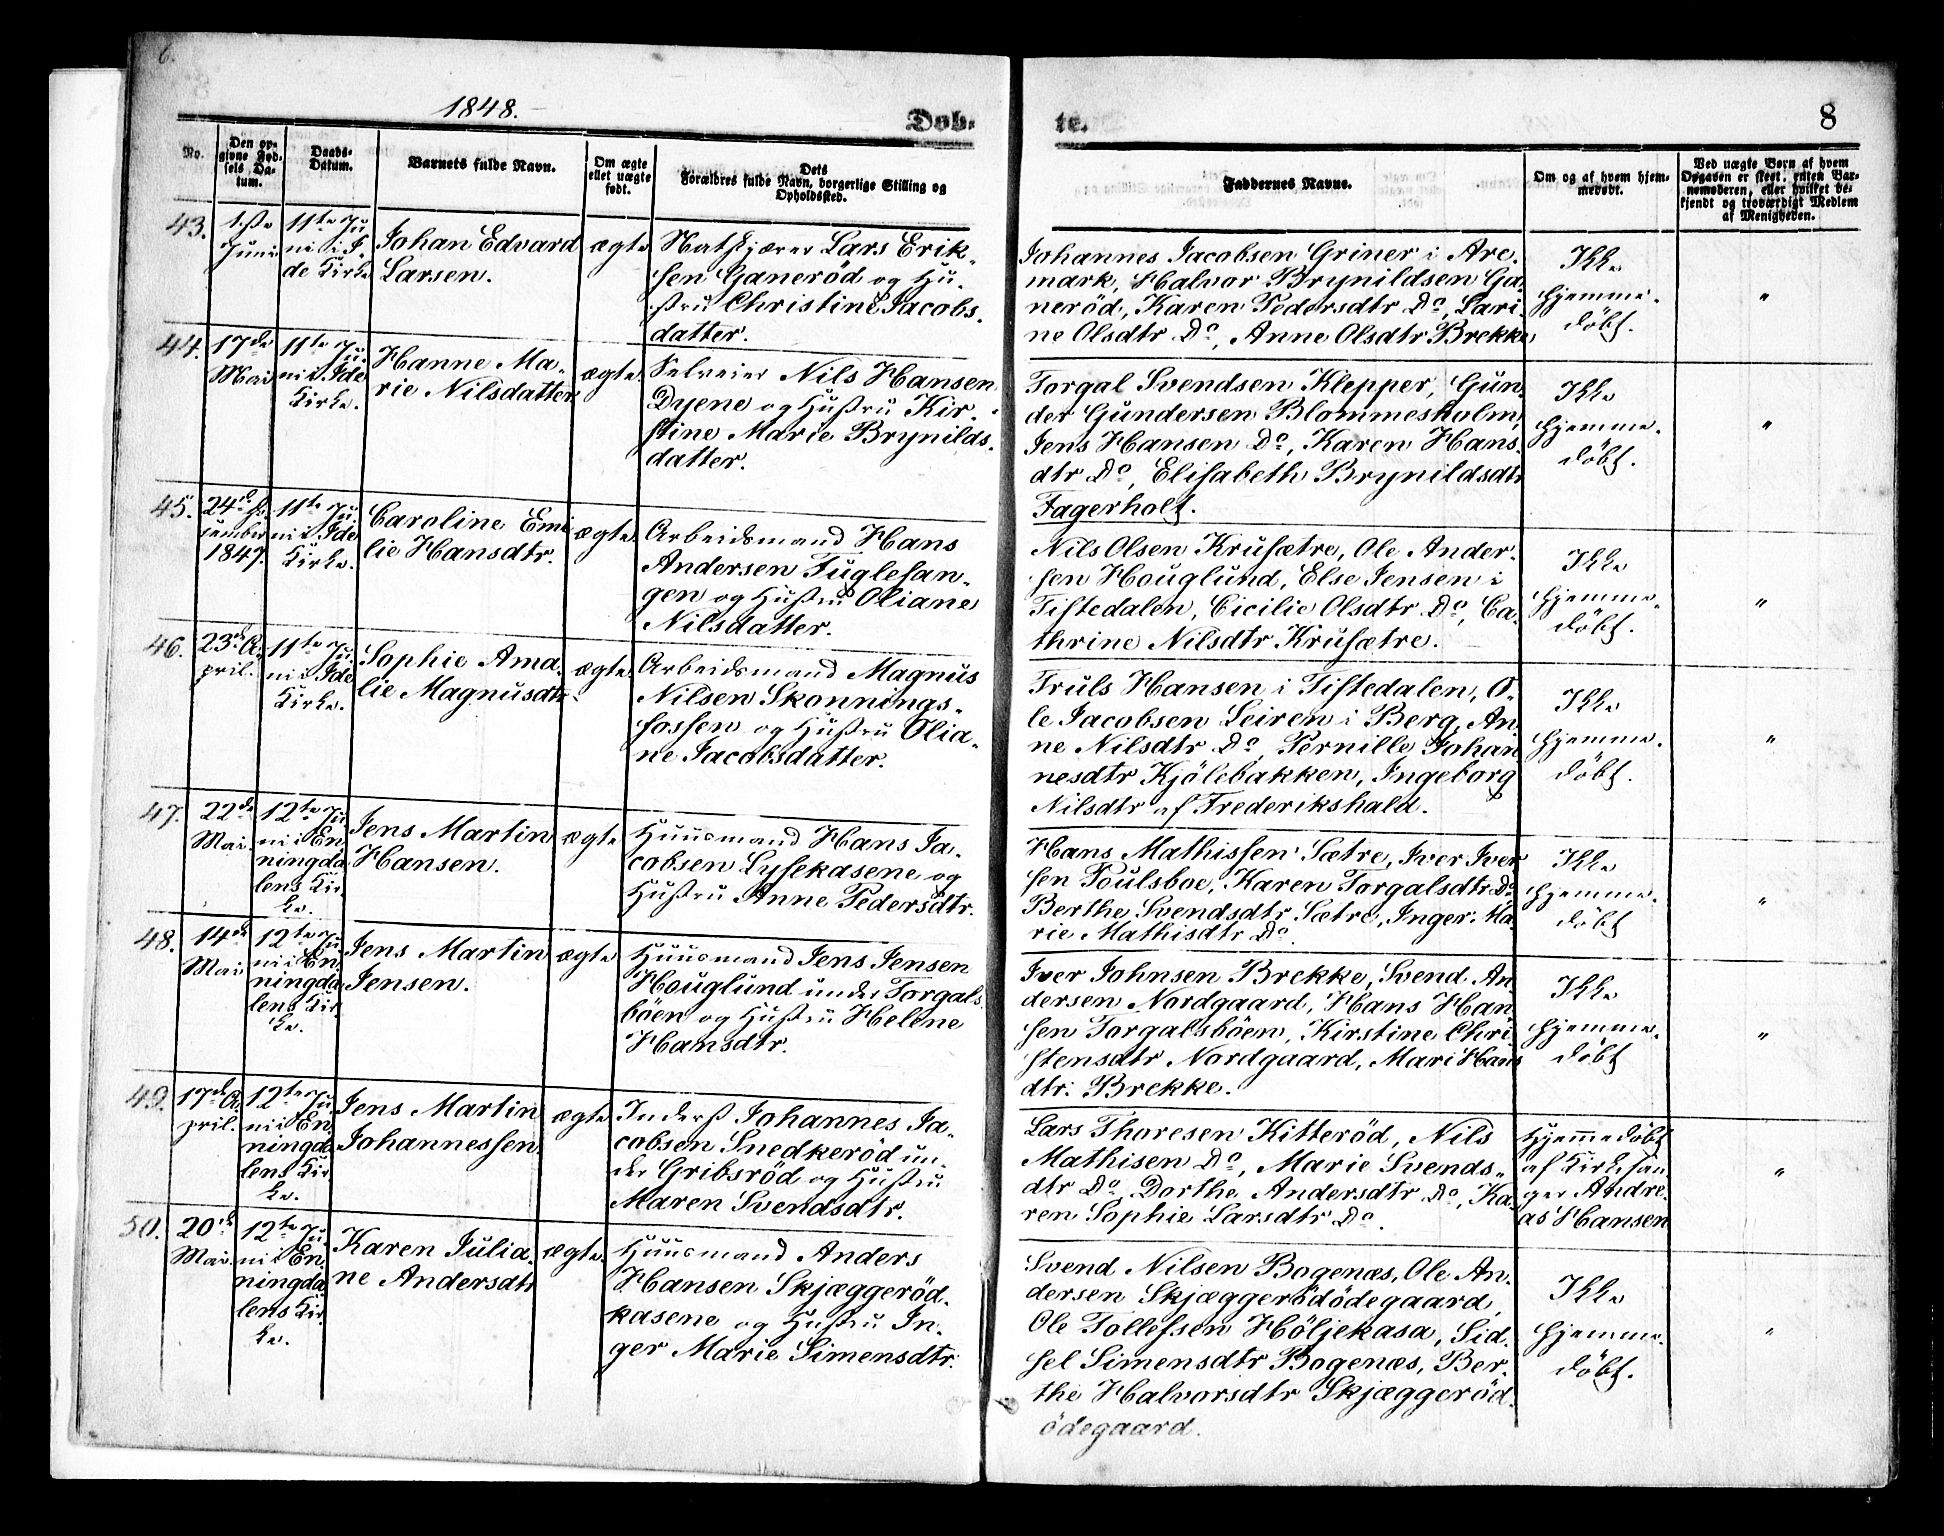 6.
1848.
Døb-
te.
8
No.
Den op-
givne Fød-
sels Da-
tum.
Daabs-
Datum.
Barnets fulde Navn.
Om ægte
eller uægte
født.
Dets
Forældres fulde Navn, borgerlige Stilling og
Opholdssted.
Faddernes Navne.
Om og af hvem hjem-
medøbt.
Ved uægte Børn af hvem
Opgaven er skeet, enten Bar-
nemoderen, eller hvilket be-
kjendt og troværdigt Medlem
af Menigheden.
43.
1ste
Juni
11te Ju-
ni i I-
de Kirke
Johan Edvard
Larsen.
ægte
Lars Erik-
sen Ganeröd og Hu-
stru Christine Jacobs-
datter.
Johannes Jacobsen Griner i Are-
mark, Halvor Brynildsen Ga-
neröd, Karen Pedersdtr Do, Lari-
ne Olsdtr Do, Anne Olsdtr Brekke
Ikke
hjemme-
döbt.
"
44.
17de
Mai
11te Ju-
ni i Ide
Kirke.
Hanne Ma-
rie Nilsdatter
ægte
Selveier Nils Hansen
Dyene og Hustru Kir-
stine Marie Brynilds-
datter.
Torgal Svendsen Klepper, Gun-
der Gundersen Blommesholm,
Jens Hansen Do, Karen Hans-
dtr Do, Elisabeth Brynildsdtr
Fagerholt.
Ikke
hjemme-
döbt.
"
45.
24de De-
cember
1847.
11te Ju-
ni i Ide
Kirke.
Caroline Emi-
lie Hansdtr.
ægte
Arbeidsmand Hans
Andersen Fuglesan-
gen og Hustru Oliane
Nilsdatter.
Nils Olsen Krusætre, Ole Ander-
sen Houglund, Else Jensen i
Tistedalen, Cicilie Olsdtr Do, Ca-
thrine Nilsdtr Krusætre.
Ikke
hjemme-
döbt.
"
46.
23de A-
pril.
11te Ju-
ni i Ide
Kirke.
Sophie Ama-
lie Magnusdtr.
ægte
Arbeidsmand Magnus
Nilsen Skonnings-
fossen og Hustru Olia-
ne Jacobsdatter.
Truls Hansen i Tistedalen, O-
le Jacobsen Seiren i Berg, An-
ne Nilsdtr Do, Pernille Johan-
nesdtr Kjölebakken, Ingeborg
Nilsdtr af Frederikshald.
Ikke
hjemme-
döbt.
"
47.
22de
Mai.
12te Ju-
ni i En-
ningda-
lens Kir-
ke.
Jens Martin
Hansen.
ægte
Huusmand Hans Ja-
cobsen Lysekasene og
Hustru Anne Pedersdtr.
Hans Mathissen Sætre, Iver Iver
sen Poulsboe, Karen Torgalsdtr Do
Berthe Svendsdtr Sætre, Inger Ma-
rie Mathisdtr Do.
Ikke
hjemme-
döbt
"
48.
14de
Mai
12te Ju-
ni i En-
ningda-
lens Kir-
ke.
Jens Martin
Jensen.
ægte
Huusmand Jens Jensen
Houglund under Torgals-
böen og Hustru Helene
Hansdtr.
Iver Johnsen Brekke, Svend An-
dersen Nordgaard, Hans Han-
sen Torgalsböen, Kirstine Chri-
stensdtr Nordgaard, Mari Hans
dtr: Brekke.
Ikke
hjemme-
döbt
"
49.
17de A-
pril.
12te Ju-
ni i En-
ningda-
lens Kir-
ke.
Jens Martin
Johannessen
ægte
Inderst Johannes Ja-
cobsen Snedkeröd un-
der Gribsröd og Hustru
Maren Svendsdtr.
Lars Thoresen Kitteröd, Nils
Mathisen Do, Marie Svends-
dtr Do, Dorthe Andersdtr Do, Ka-
ren Sophie Larsdtr Do.
Hjemmedöbt
af Kirkesan-
ger Andre-
as Hansen
"
50.
20de
Mai.
12te Ju-
ni i En-
ningda-
lens Kir-
ke.
Karen Julia-
ne Andersdtr
ægte
Huusmand Anders
Hansen Skjæggeröd-
kasene og Hustru In-
ger Marie Simensdtr.
Svend Nilsen Bogenæs, Ole An-
dersen Skjæggerödödegaard,
Ole Tollefsen Höljekasa, Sid-
sel Simensdtr Bogenæs, Ber-
the Halvorsdtr Skjæggeröd-
ödegaard.
Ikke
hjemme-
döbt.
"